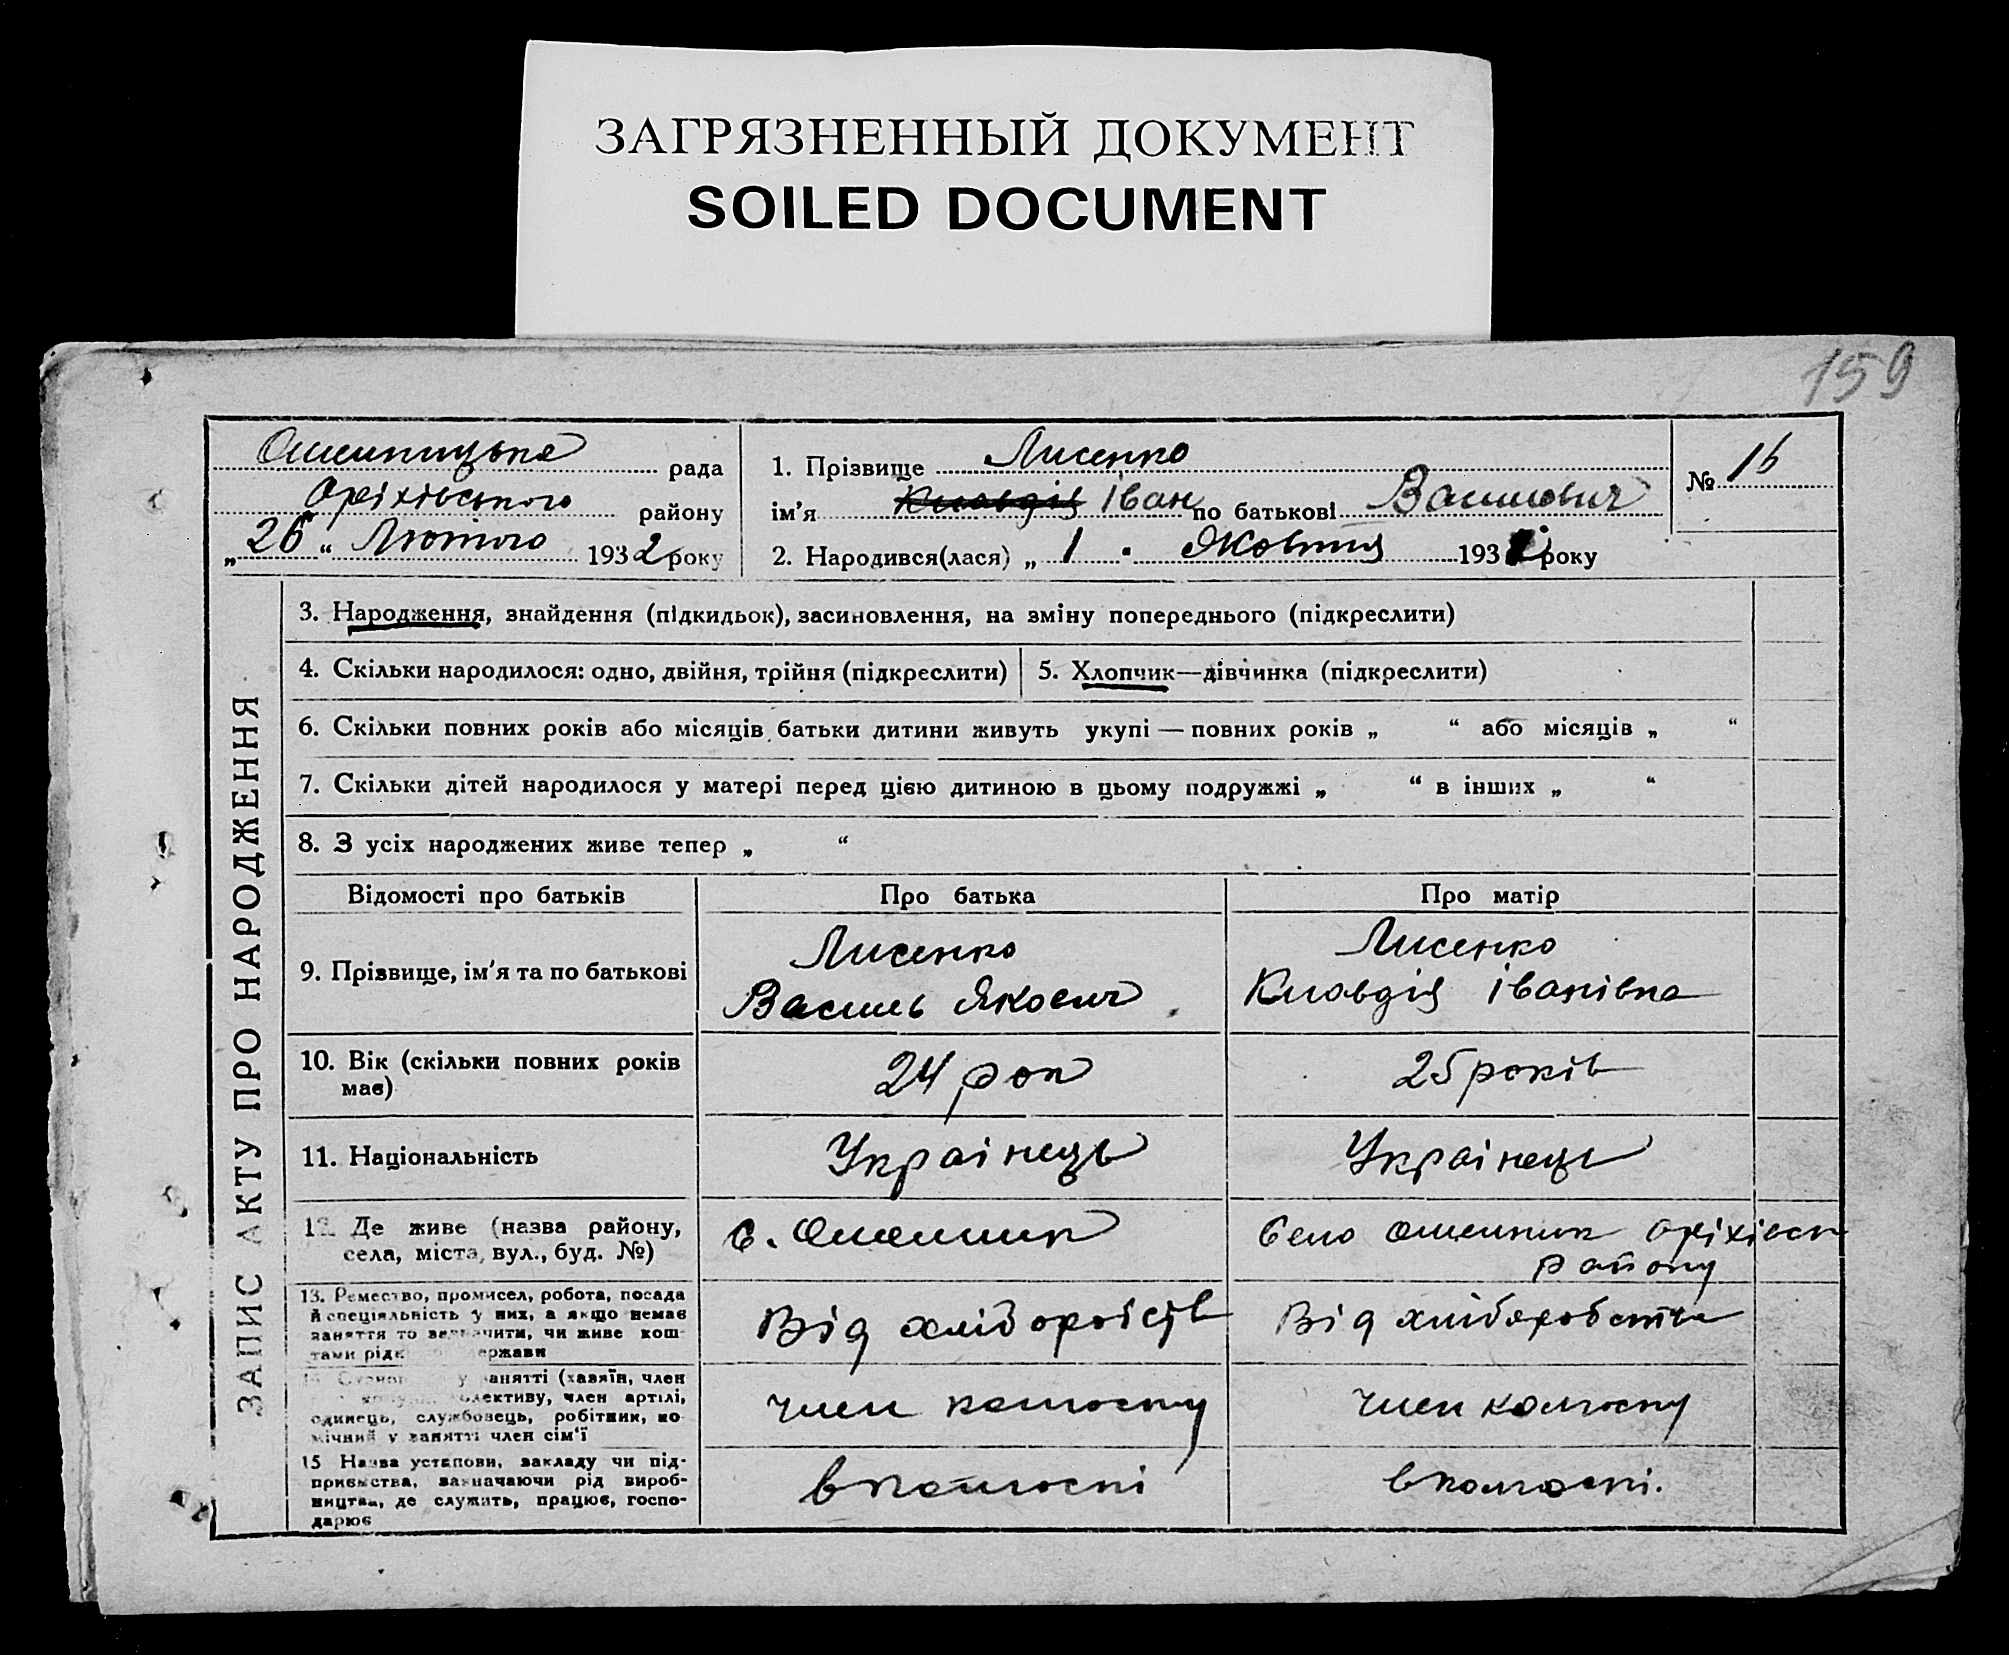 ЗАГРЯЗНЕННЫЙ ДОКУМЕНТ
SOILED DOCUMENT
159
Омельницька рада
Оріхівського району
„26“ Лютого 1932 року
1. Прізвище Лисенко
ім'я Клавдія Іван по батькові Васильович
2. Народився(лася) „ 1 " Жовтня 193 року
№ 16
ЗАПИС АКТУ ПРО НАРОДЖЕННЯ
3. Народження, знайдення (підкидьок), засиновлення, на зміну попереднього (підкреслити)
4. Скільки народилося: одно, двійня, трійня (підкреслити)
5. Хлопчик—дівчинка (підкреслити)
6. Скільки повних років або місяців батьки дитини живуть укупі — повних років „ “ або місяців „ “
7. Скільки дітей народилося у матері перед цією дитиною в цьому подружжі „ “ в інших „ “
8. З усіх народжених живе тепер „ “
Відомості про батьків
Про батька
Про матір
9. Прізвище, ім'я та по батькові
Лисенко
Василь Якович
Лисенко
Клавдія Іванівна
10. Вік (скільки повних років
має)
24 рок
25 років
11. Національність
Украінець
Украінець
12. Де живе (назва району,
села, міста, вул., буд. №)
с. Омельник
Село Омельник Оріхівськ
району
13. Ремество, промисел, робота, посада
й спеціяльність у них, а якщо немає
заняття то зазначити, чи живе кош-
тами рідн держави
Від хліборобств
Від хліборобства
у занятті (хазяїн, член
колективу, член артілі,
одинець, службовець, робітник, по-
мічний у занятті член сім'ї
член колгоспу
член колгоспу
15 Назва установи, закладу чи під-
приємства, зазначаючи рід вироб-
ництва, де служить, працює, госпо-
дарює
в колгоспі
в колгоспі.